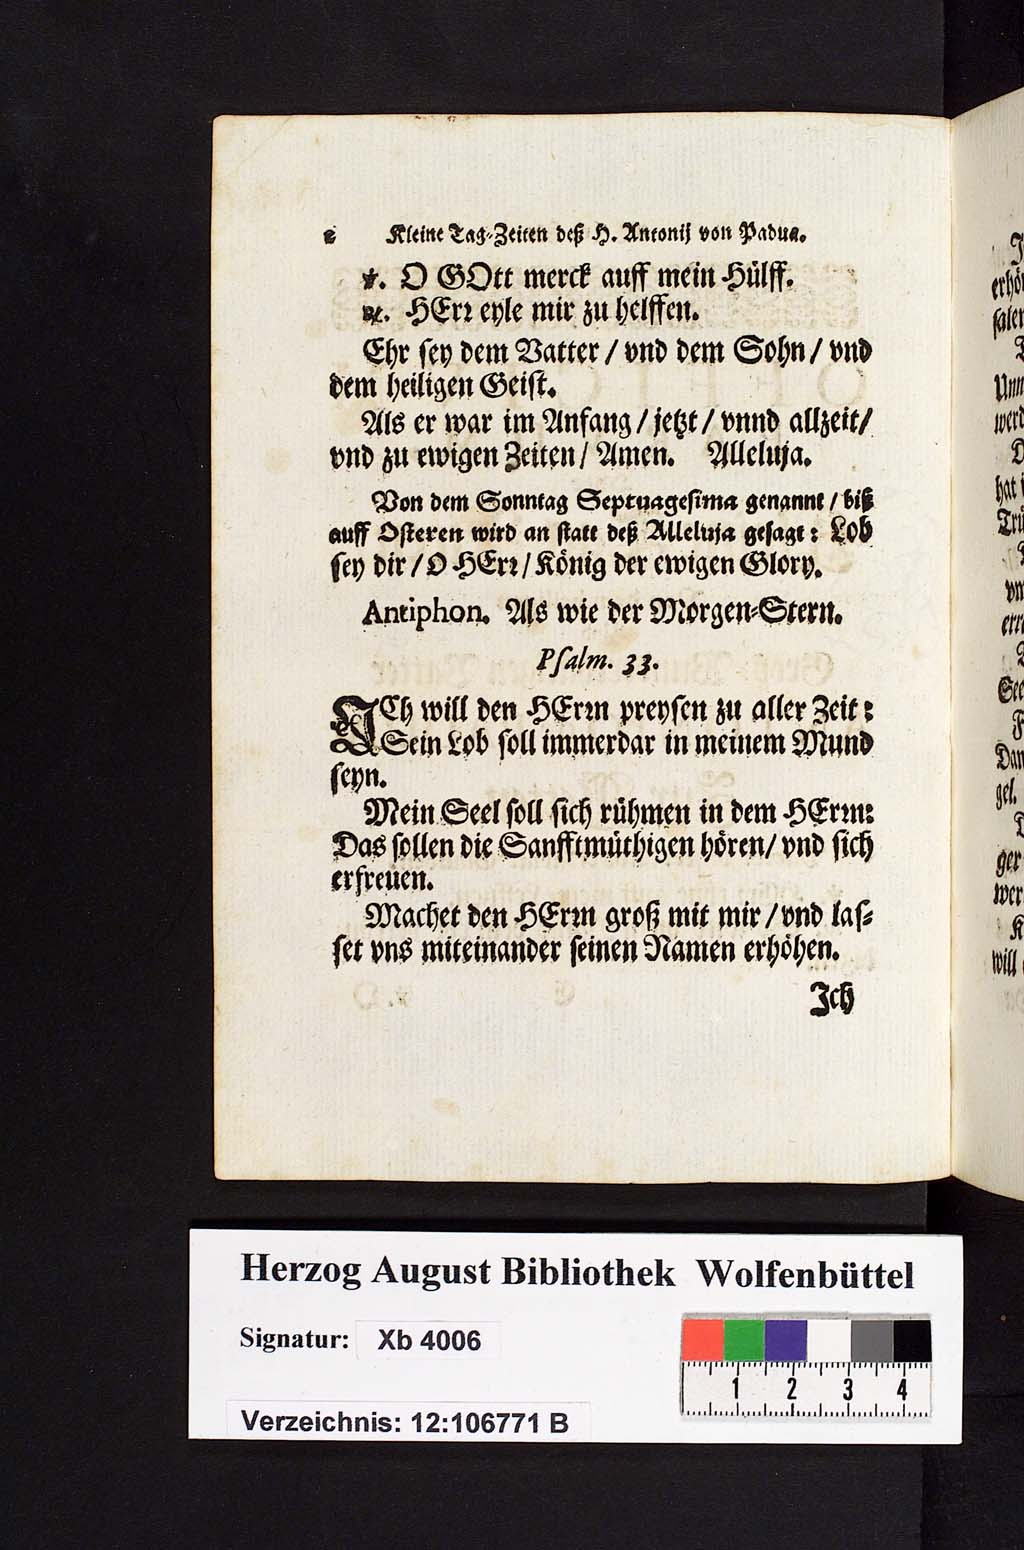 2 Kleine Tag-Zeiten deß H. Antonij von Padua.
℣. O GOtt merck auff mein Hülff.
℟. HErr eyle mir zu helffen.
Ehr sey dem Vatter / vnd dem Sohn / vnd
dem heiligen Geist.
Als er war im Anfang / jetzt / vnnd allzeit /
vnd zu ewigen Zeiten / Amen. Alleluja.
Von dem Sonntag Septuagesima genannt / biß
auff Osteren wird an statt deß Alleluja gesagt: Lob
sey dir / O HErr / König der ewigen Glory.
Antiphon. Als wie der Morgen-Stern.
Psalm. 33.
ICh will den HErrn preysen zu aller Zeit:
Sein Lob soll immerdar in meinem Mund
seyn.
Mein Seel soll sich rühmen in dem HErrn:
Das sollen die Sanfftmüthigen hören / vnd sich
erfreuen.
Machet den HErrn groß mit mir / vnd las-
set vns miteinander seinen Namen erhöhen.
Ich
Herzog August Bibliothek Wolfenbüttel
Signatur: Xb 4006
Verzeichnis: 12:106771 B
1 2 3 4